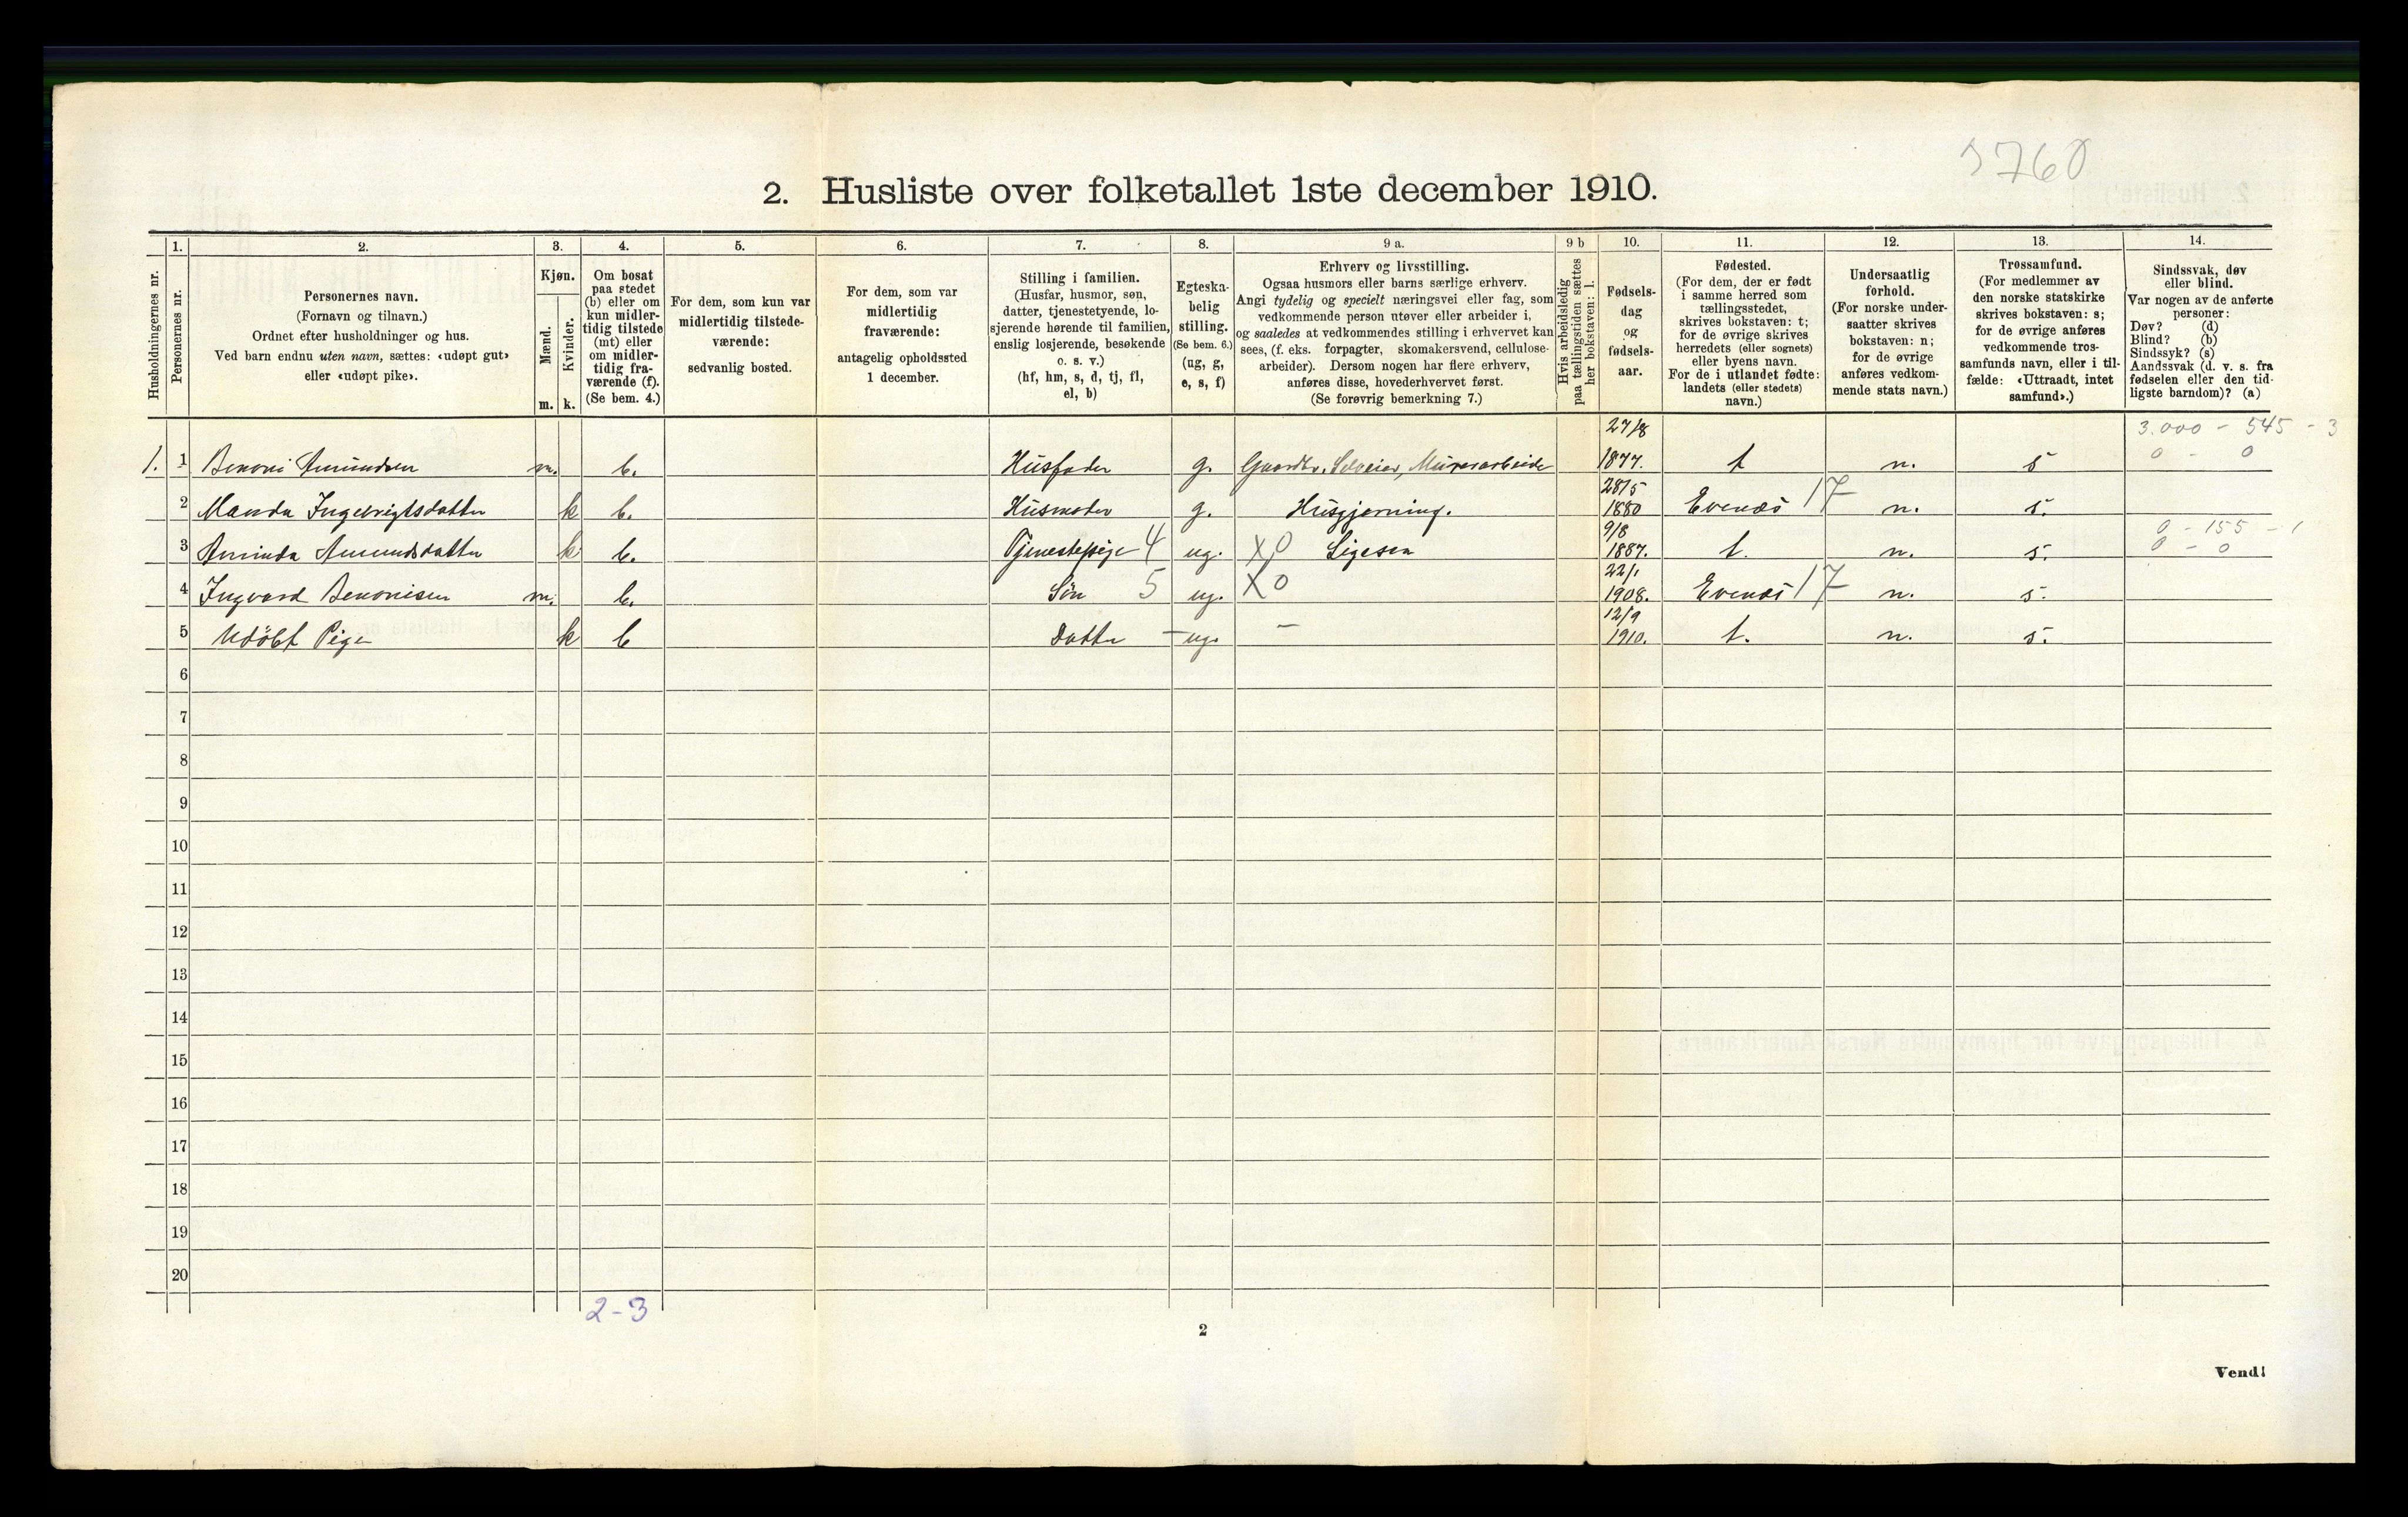 3760
2. Husliste over folketallet 1ste december 1910.
1. 2. 3. 4. 5. 6. 7. 8. 9 a. 9 b 10. 11. 12. 13. 14.
Husholdningernes nr.
Personernes nr.
Personernes navn.
(Fornavn og tilnavn.)
Ordnet efter husholdninger og hus.
Ved barn endnu uten navn, sættes: «udøpt gut»
eller «udøpt pike».
Kjøn.
Mænd.
Kvinder.
m. k.
Om bosat
paa stedet
(b) eller om
kun midler-
tidig tilstede
(mt) eller
om midler-
tidig fra-
værende (f).
(Se bem. 4.)
For dem, som kun var
midlertidig tilstede-
værende:
sedvanlig bosted.
For dem, som var
midlertidig
fraværende:
antagelig opholdssted
1 december.
Stilling i familien.
(Husfar, husmor, søn,
datter, tjenestetyende, lo-
sjerende hørende til familien,
enslig losjerende, besøkende
o. s. v.)
(hf, hm, s, d, tj, fl,
el, b)
Egteska-
belig
stilling.
(Se bem. 6.)
(ug, g,
e, s, f)
Erhverv og livsstilling.
Ogsaa husmors eller barns særlige erhverv.
Angi tydelig og specielt næringsvei eller fag, som
vedkommende person utøver eller arbeider i,
og saaledes at vedkommendes stilling i erhvervet kan
sees, (f. eks. forpagter, skomakersvend, cellulose-
arbeider). Dersom nogen har flere erhverv,
anføres disse, hovederhvervet først.
(Se forøvrig bemerkning 7.)
Hvis arbeidsledig
paa tællingstiden sættes
her bokstaven: l.
Fødsels-
dag
og
fødsels-
aar.
Fødested.
(For dem, der er født
i samme herred som
tællingsstedet,
skrives bokstaven: t;
for de øvrige skrives
herredets (eller sognets)
eller byens navn.
For de i utlandet fødte:
landets (eller stedets)
navn.)
Undersaatlig
forhold.
(For norske under-
saatter skrives
bokstaven: n;
for de øvrige
anføres vedkom-
mende stats navn.)
Trossamfund.
(For medlemmer av
den norske statskirke
skrives bokstaven: s;
for de øvrige anføres
vedkommende tros-
samfunds navn, eller i til-
fælde: «Uttraadt, intet
samfund».)
Sindssvak, døv
eller blind.
Var nogen av de anførte
personer:
Døv? (d)
Blind? (b)
Sindssyk? (s)
Aandssvak (d. v. s. fra
fødselen eller den tid-
ligste barndom)? (a)
27/8 3.000 - 545 - 3
1. 1 Benoni Amundsen m. b. Husfader g. Gaardbr. Selveier, Murerarbeide 1877. t n. s 0 - 0
28/5
2 Manda Ingebrigtsdatter k b. Husmoder g. Husgjerning. 1880 Evenæs 17 n. s.
9/8 0 - 155 - 1
3 Aminda Amundsdatter k b. Tjenestepige 4 ug. X0 Ligesen 1887. t. n. s. 0 - 0
22/1
4 Ingvard Benonisen m. b. Søn 5 ug. X0 1908. Evenæs 17 n. s.
12/9
5 Udöbt Pige k b Datter - ug. - 1910. t. n. s.
6
7
8
9
10
11
12
13
14
15
16
17
18
19
20
2-3
2
Vend!